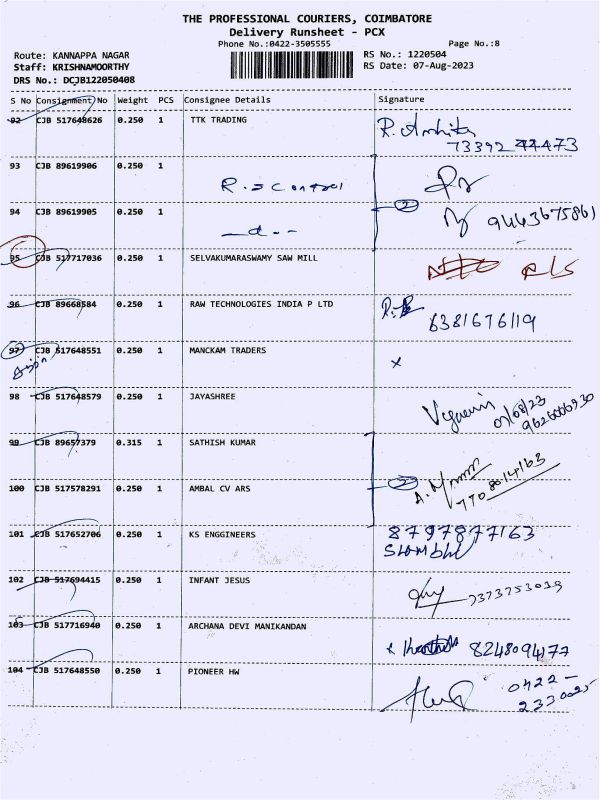 THE PROFESSIONAL COURIERS, COIMBATORE
Delivery Runsheet - PCX
Phone No.:0422-3505555
Page No.:8
Route: KANNAPPA NAGAR
RS No.: 1220504
Staff: KRISHNAMOORTHY
RS Date: 07-Aug-2023
DRS No.: DCJB122050408
S No Consignment No Weight PCS Consignee Details Signature
92 CJB 517648626 0.250 1 TTK TRADING
73392 77473
93 CJB 89619906 0.250 1
94 CJB 89619905 0.250 1
2
9443675861
95 CJB 517717036 0.250 1 SELVAKUMARASWAMY SAW MILL
96 CJB 89668584 0.250 1 RAW TECHNOLOGIES INDIA P LTD
6381676119
97 CJB 517648551 0.250 1 MANCKAM TRADERS
x
98 CJB 517648579 0.250 1 JAYASHREE
07/08/23
99 CJB 89657379 0.315 1 SATHISH KUMAR
100 CJB 517578291 0.250 1 AMBAL CV ARS
2
101 CJB 517652706 0.250 1 KS ENGGINEERS
8797877163
102 CJB 517694415 0.250 1 INFANT JESUS
7373753039
103 CJB 517716940 0.250 1 ARCHANA DEVI MANIKANDAN
x
8248094177
104 CJB 517648550 0.250 1 PIONEER HW
0422-
2330025